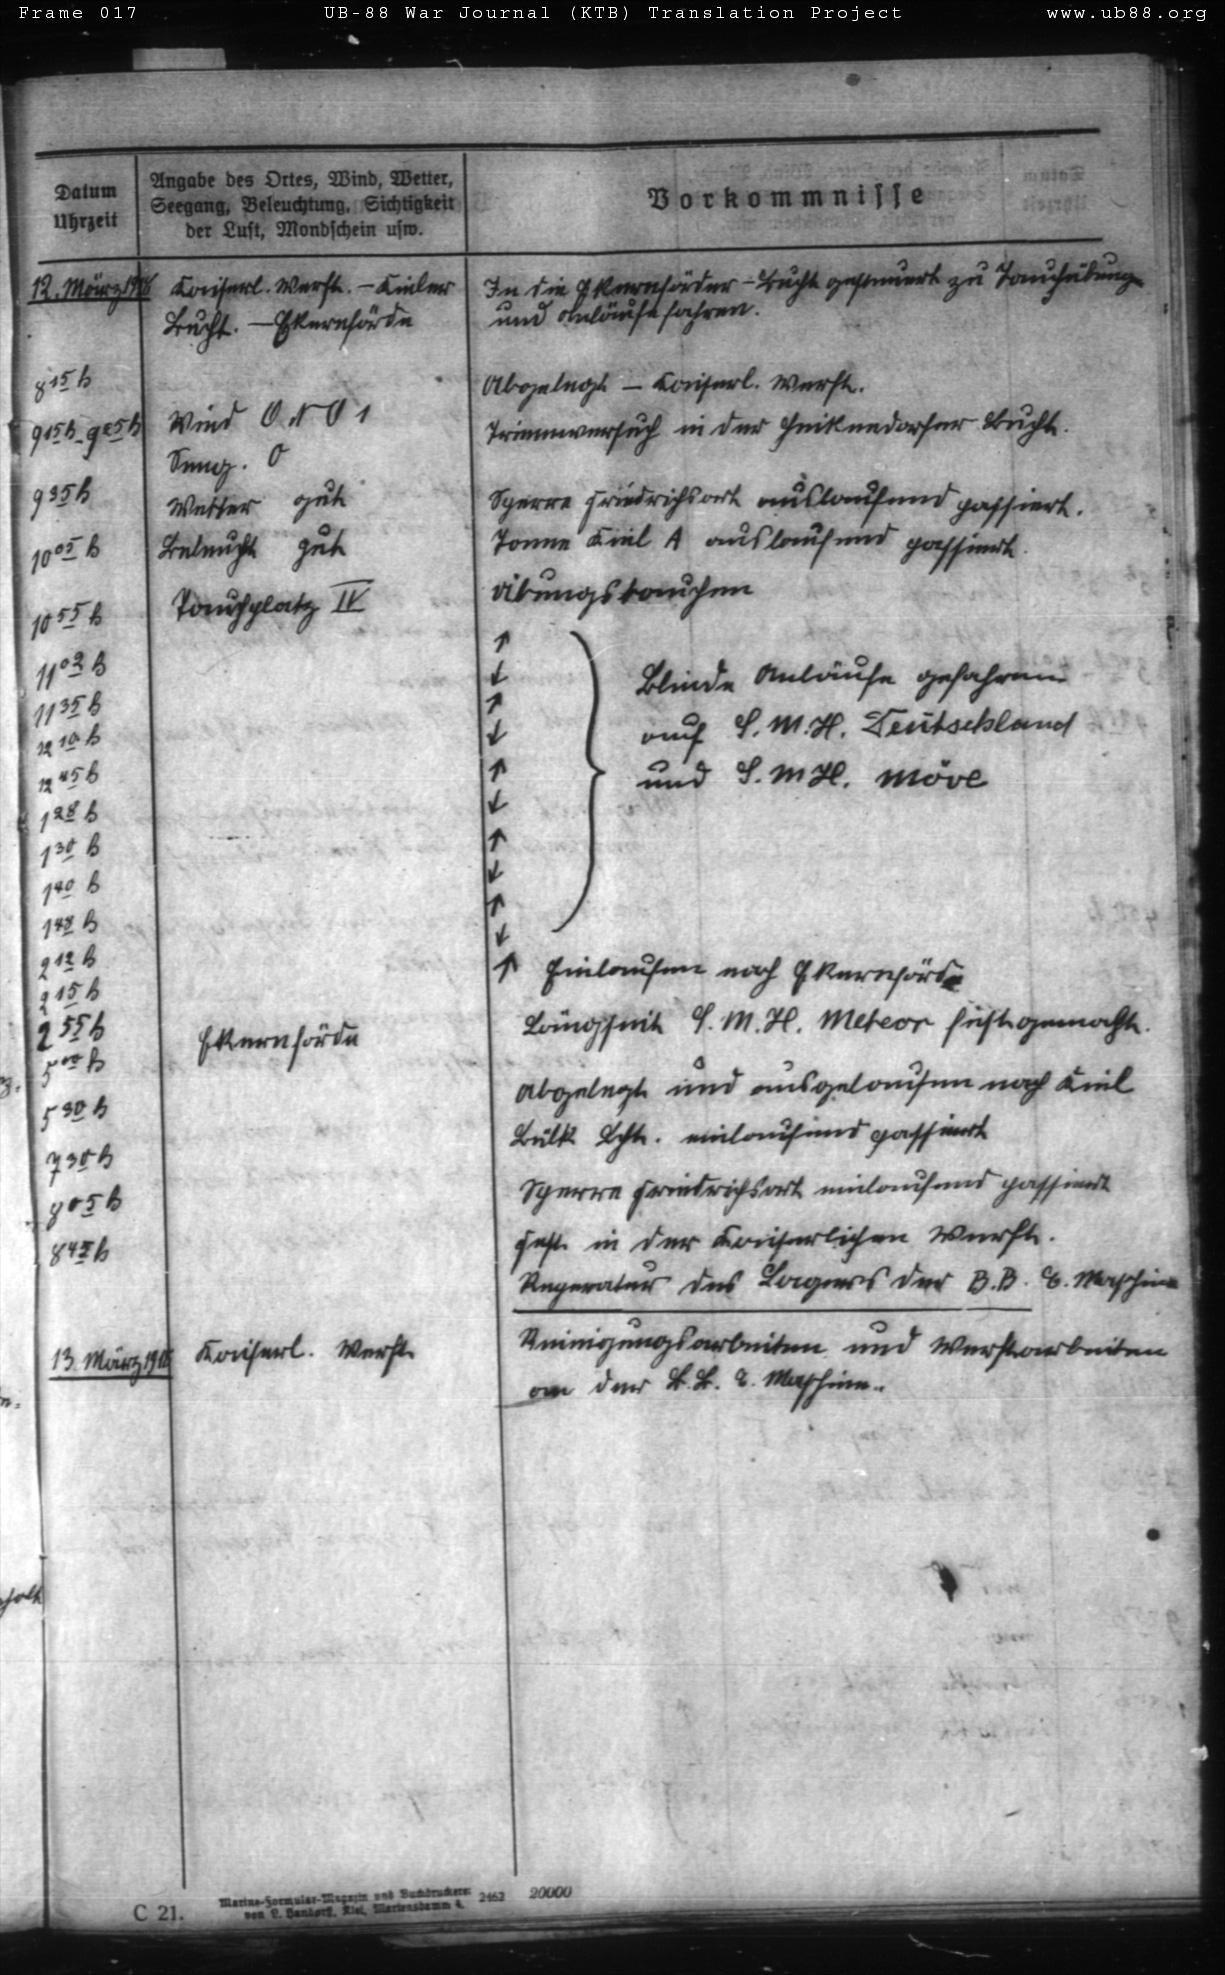 Frame 017 UB-88 War Journal (KTB) Translation Project www.ub88.org
Datum
Uhrzeit
Angabe des Ortes, Wind, Wetter,
Seegang, Beleuchtung, Sichtigkeit
der Luft, Mondschein usw.
Vorkommnisse
12. März 1918 Kaiserl. Werft. – Kieler In die Ekernförder – Bucht gesteuert zu Tauchübung
Bucht. – Ekernförde und Anläufe fahren.
8 15 h Abgelegt – Kaiserl. Werft.
9 15 h - 9 25 h Wind O N O 1 Trimmversuch in der Heikendorfer Bucht.
Seeg. 0
9 35 h Wetter gut Sperre Friedrichsort auslaufend passiert.
10 05 h Beleucht gut Tonne Kiel A auslaufend passiert.
10 55 h Tauchplatz IV Übungstauchen
11 02 h ↑
11 35 h ↓ Blinde Anläufe gefahren
12 10 h ↑ auf S. M. H. Deutschland
12 45 h ↓ und S. M. H. Möve
1 28 h ↑
1 30 h ↓
1 40 h ↑
1 48 h ↓
2 12 h ↑
↓
2 15 h ↑ Einlaufen nach Ekernförde
2 55 h Ekernförde Längseit S. M. H. Meteor festgemacht.
5 00 h Abgelegt und ausgelaufen nach Kiel
5 30 h Bülk Lcht. einlaufend passiert
7 30 h Sperre Friedrichsort einlaufend passiert
8 05 h Fest in der Kaiserlichen Werft.
8 45 h Reperatur des Lagers der B.B. E. Maschine
13. März 1918 Kaiserl. Werft Reinigungsarbeiten und Werftarbeiten
an der B.B. E. Maschine.
C 21.
Marine-Formular-Magazin und Buchdruckerei
von L. Handorff, Kiel, Martensdamm 4.
2462 20000